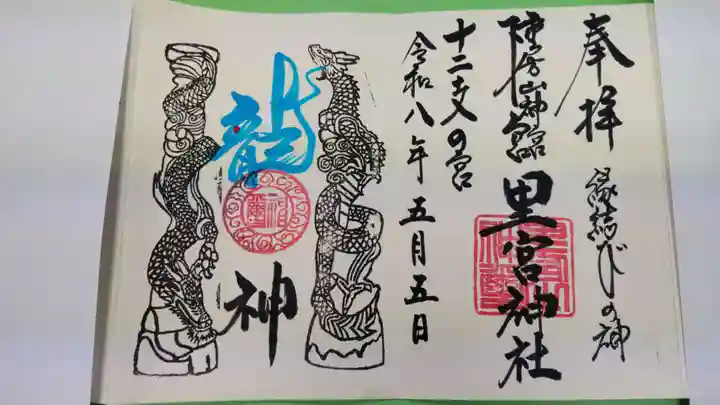 奉拝
縁結びの神
陣ヶ岡山神宮
里宮神社
十二支の宮
令和八年五月五日
龍
神